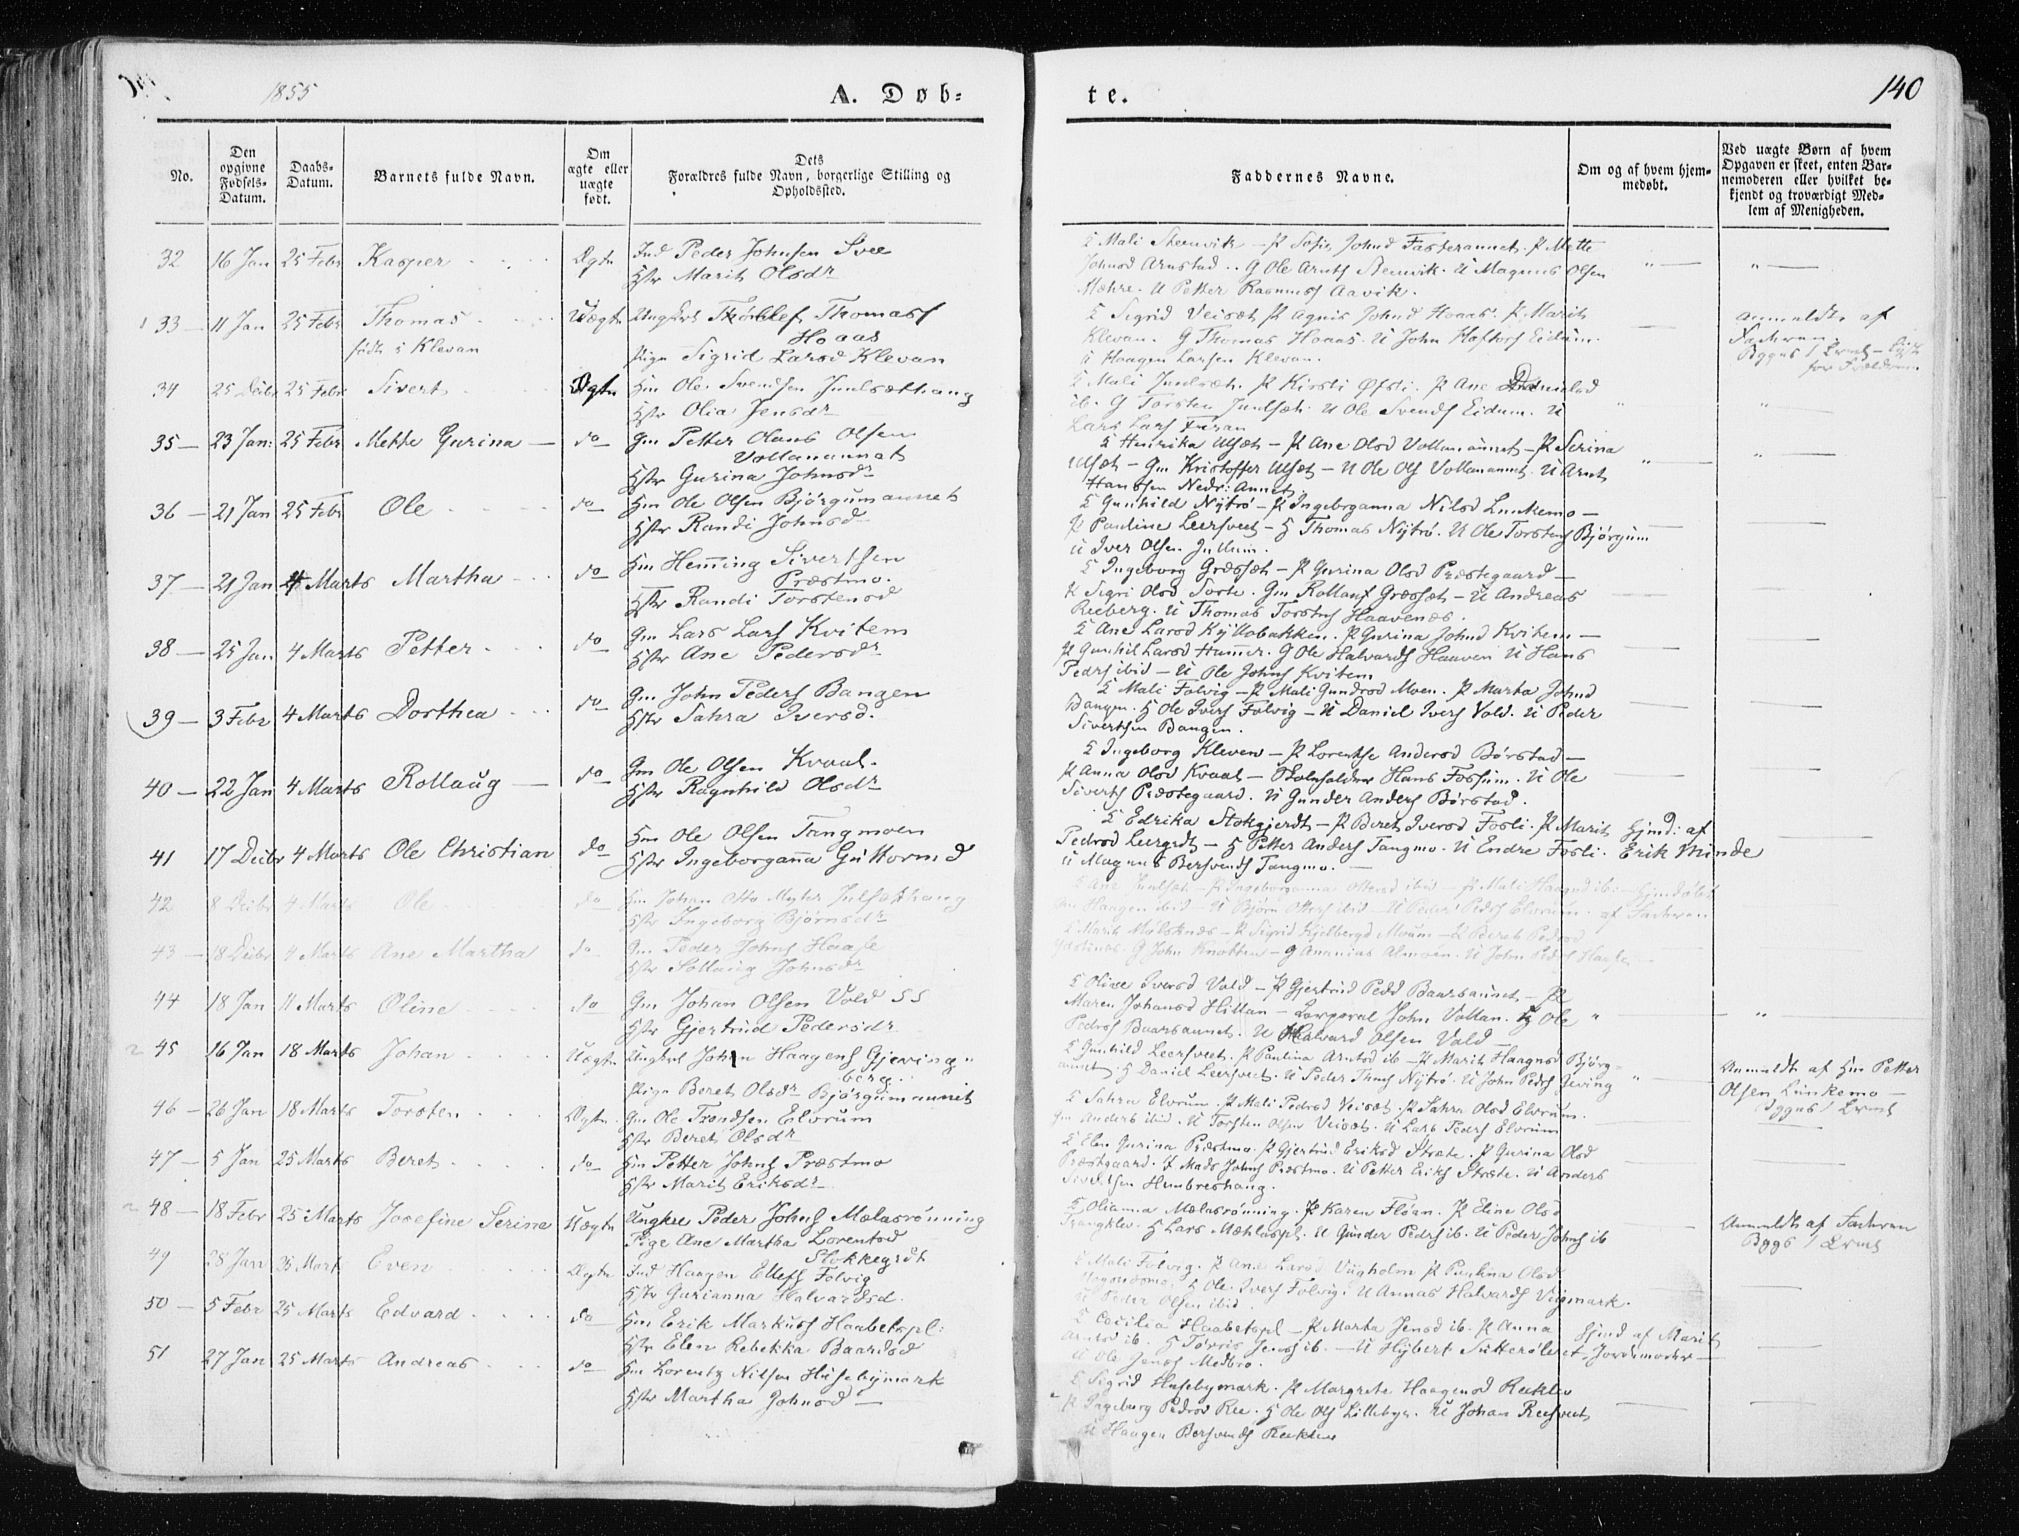 1855
A. Døb=
te.
140
No.
Den opgivne Fødsels-Datum.
Daabs-Datum.
Barnets fulde Navn.
Om ægte eller uægte født.
Dets Forældres fulde Navn, borgerlige Stilling og Opholdssted.
Faddernes Navne.
Om og af hvem hjemmedøbt.
Ved uægte Børn af hvem Opgaven er skeet, enten Barnemoderen eller hvilket bekjendt og troværdigt Medlem af Menigheden.
32 16 Jan 25 Febr Kasper Ægte Ind Peder Johnsen Svee
Hstr Marit Olsdr
K Mali Steenvik – P Sofie Johnsd Fasterannet. P Mette
Johnsd Arnstad .. G Ole Arnts Steenvik. U Magnus Olsen
Mæhre. U Petter Rasmusf Aavik.
33 – 11 Jan 25 Febr Thomas Uægte Ungkrl Thomasf
Hoaas
født i Klevan
Pige Sigrid Larsd Klevan
K Sigrid Veiset P Agnis Johnd Hoaas. P. Marit
Klevan. G Thomas Hoaas. U John Eidum.
U Haagen Larsen Klevan.
Anmeldt af
Faderen
34 25 Decbr 25 Febr Sivert Ægte Hm Ole Svendsen Juulsæthaug
Hstr Olia Jensdr
K Mali Juulsæt. P Kirsti Øfsti. P Ane
ib. G Torsten Juulsæt. U Ole Svends Eidum. U
Lars Larsf
35 – 23 Jan: 25 Febr Mette Gurina – do Gm Petter Olaus Olsen
Vollanannet
Hstr Gurina Johnsdr
K Henrika Ulset – P Ane Olsd Vollanannet – P Serina
Ulset – Gm Kristoffer Ulset – U Ole Ols Vollanannet. U Arnt
Hansen Nedr: Annet.
36 – 21 Jan 25 Febr Ole do Hm Ole Olsen Bjørgumannet
Hstr Randi Johnsd
K Gunhild Nytrø – P Ingeborganna Nilsd Lunkemo –
P Pauline Leersveet – G Thomas Nytrø. U Ole Torstens Bjørgum
U Iver Olsen Jullum.
37 – 21 Jan 4 Marts Martha do Hm Heming Sivertsen
Præstmo.
Hstr Randi Torstensd
K Ingeborg Græsset – P Gurina Olsd Præstegaard –
P Sigri Olsd Gm Græsset – U Andreas
Reeberg. U Thomas Torstens Haavenæs.
38 – 25 Jan 4 Marts Petter do Gm Lars Larsf Kvitem
Hstr Ane Pedersdr
K Ane Larsd Kyllobakken. P Gurina Johnsd Kvitem –
P Gunhil Larsd Hammer. G Ole Halvards Haaven U Hans
Pedrs ibid – U Ole Johns Kvitem
39 – 3 Febr 4 Marts Dorthea do Gm John Peders Bangen
Hstr Sahra Iversd.
K Mali Folvig – P Mali Gundrsd Moen. P Marta Johnd
Bangen. G Ole Ivers Folvig – U Daniel Ivers Vold. U Peder
Sivertsen Bangen.
40 – 22 Jan 4 Marts Rollaug – do Gm Ole Olsen Kvaal.
Hstr Ragnhild Olsdr
K Ingeborg Kleven – P Lorentse Andersd Børstad –
P Anna Olsd Kvaal – Hans Fossum. U Ole
Siverts Præstegaard. U Gunder Anders Børstad.
41 17 Decbr 4 Marts Ole Christian do Hm Ole Olsen Tangmoen
Hstr Ingeborganna Guttormd
K Edrika Stokgjerdt – P Beret Iversd Fosli. P Marit
Pedrsd Leergrdt – G Petter Anders Tangmo. U Endre Fosli.
U Magnus Bersvends Tangmo. –
Hjmd: af
Erik Minde
42 8 Decbr 4 Marts Ole do Hm Johan Otto Julsæthaug
Hstr Ingeborg Bjørnsdr
K Ane Juulsæt – P Ingeborganna Ottersd ibid – P Mali Haagnsd ib: –
Haagen ibid – U Bjørn Otters ibid – U Peder Peders Elvrum.
Hjemdøbt
af Faderen
43 – 18 Decbr 4 Marts Ane Martha do Gm Peder Johns
Hstr Sollaug Johnsdr
K Marit – P Sigrid Kjelbergsd Moum – P Beret Pedrsd
G John Knotten – G Ananias Almoen. U John Peders
44 18 Jan 11 Marts Oline do Gm Johan Olsen Vold SS
Hstr Gjertrud Pedersdr
K Oline Iversd Vold – P Gjertrud Pedd Baarsaunet – P
Maren Johansd Hillan – Korporal John Vollan. G Ole
Pedrsf Baarsaunet. U Halvard Olsen Vold –
45 16 Jan 18 Marts Johan Uægte Ungkrl Johan Haagens Gjeving-
berg.
Pige Beret Olsdr Bjørgumannet
K Gunhild Leersveet. P Paulina Arntsd ib – P Marit Haagnsd Bjørg-
annet. G Daniel Leersveet. U Peder Thms Nytrø. U John Pedrs Gjeving
Anmeldt af Hm Petter
Olsen Lunkemo –
46 – 26 Jan 18 Marts Torsten Ægte Gm Ole Trondsen Elvrum
Hstr Beret Olsdr
K Sahra Elvrum. P Mali Pedrsd Veiset. P Sahra Olsd Elvrum.
Gm Anders ibid. U Torsten Olsen Veiset. U Lars Pedrs Elvrum
47 – 5 Jan 25 Marts Beret do Hm Petter Johns Præstmo
Hstr Marit Eriksdr
K Elen Gurina Præstmo. P Gjertrud Eriksd Stræte. P Gurina Olsd
Præstgaard. G Mads Johns Præstmo. U Petter Eriks Stræte. U Anders
Sivertsen Hembreshaug.
48 – 18 Febr 25 Marts Josefine Serine Uægte Ungkre Peder Johns Mælasrønning
Pige Ane Martha Lorentsd
Stokkegrdt
K Olianna Mælasrønning. P Karen Floan. P Eline Olsd
G Lars U Gunder Pedrs ib. U Peder Johns ib
Anmeldt af Faderen
49 28 Jan 25 Mart Even Ægte Ind Haagen Ellefs Folvig
Hstr Gurianna Halvardsd.
K Mali Folvig. P Ane Larsd Viigholm P Paulina Olsd
G Ole Ivers Folvig. U Annas Halvards Viigmark.
U Peder Olsen ibid.
50 – 5 Febr 25 Marts Edvard do Hm Erik Markusf Haabetspl:
Hstr Elen Rebekka Baardsd
K Cecilia Haabetspl – P Marta Jensd ib. P Anna
Arntsd ib. G Tørris Jens ib. – U Hybert
U Ole Jens Medbro.
Hjmd af Marit
Jordemoder
51 27 Jan 25 Marts Andreas do Hm Lorentz Nilsen Husebymark
Hstr Martha Johnsd –
K Sigrid Husebymark. P Margrete Haagensd Reeklev
P Ingeborg Pedrsd Ree. G Ole Ols Lillebye. U Johan Reesveet
U Haagen Bersvends